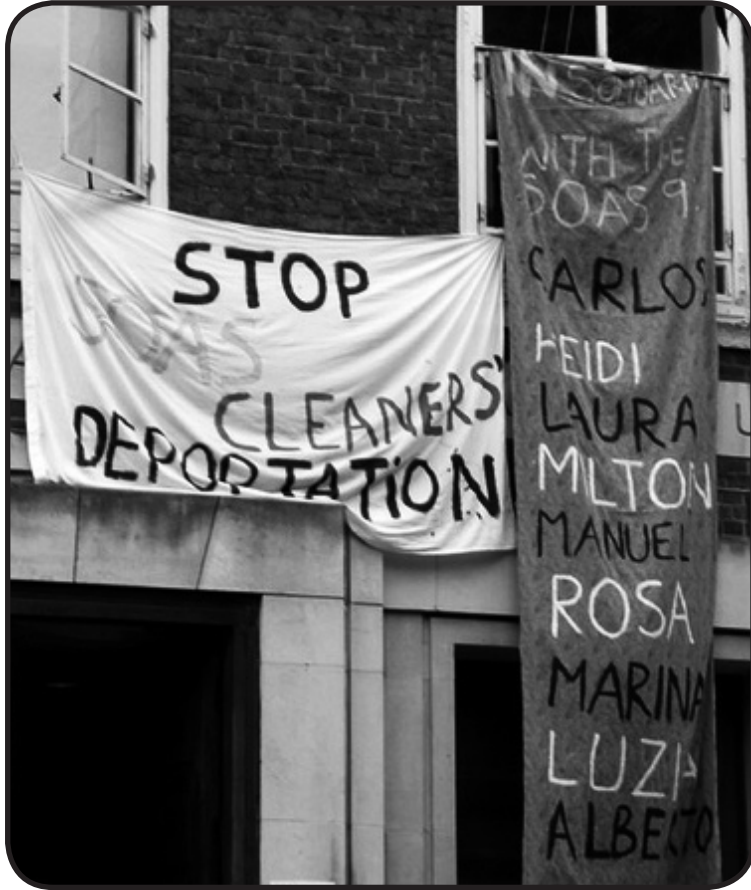 STOP
SOAS
CLEANERS'
DEPORTATION
IN SOLIDARITY
WITH THE
SOAS 9.
CARLOS
HEIDI
LAURA
MILTON
MANUEL
ROSA
MARINA
LUZIA
ALBERTO